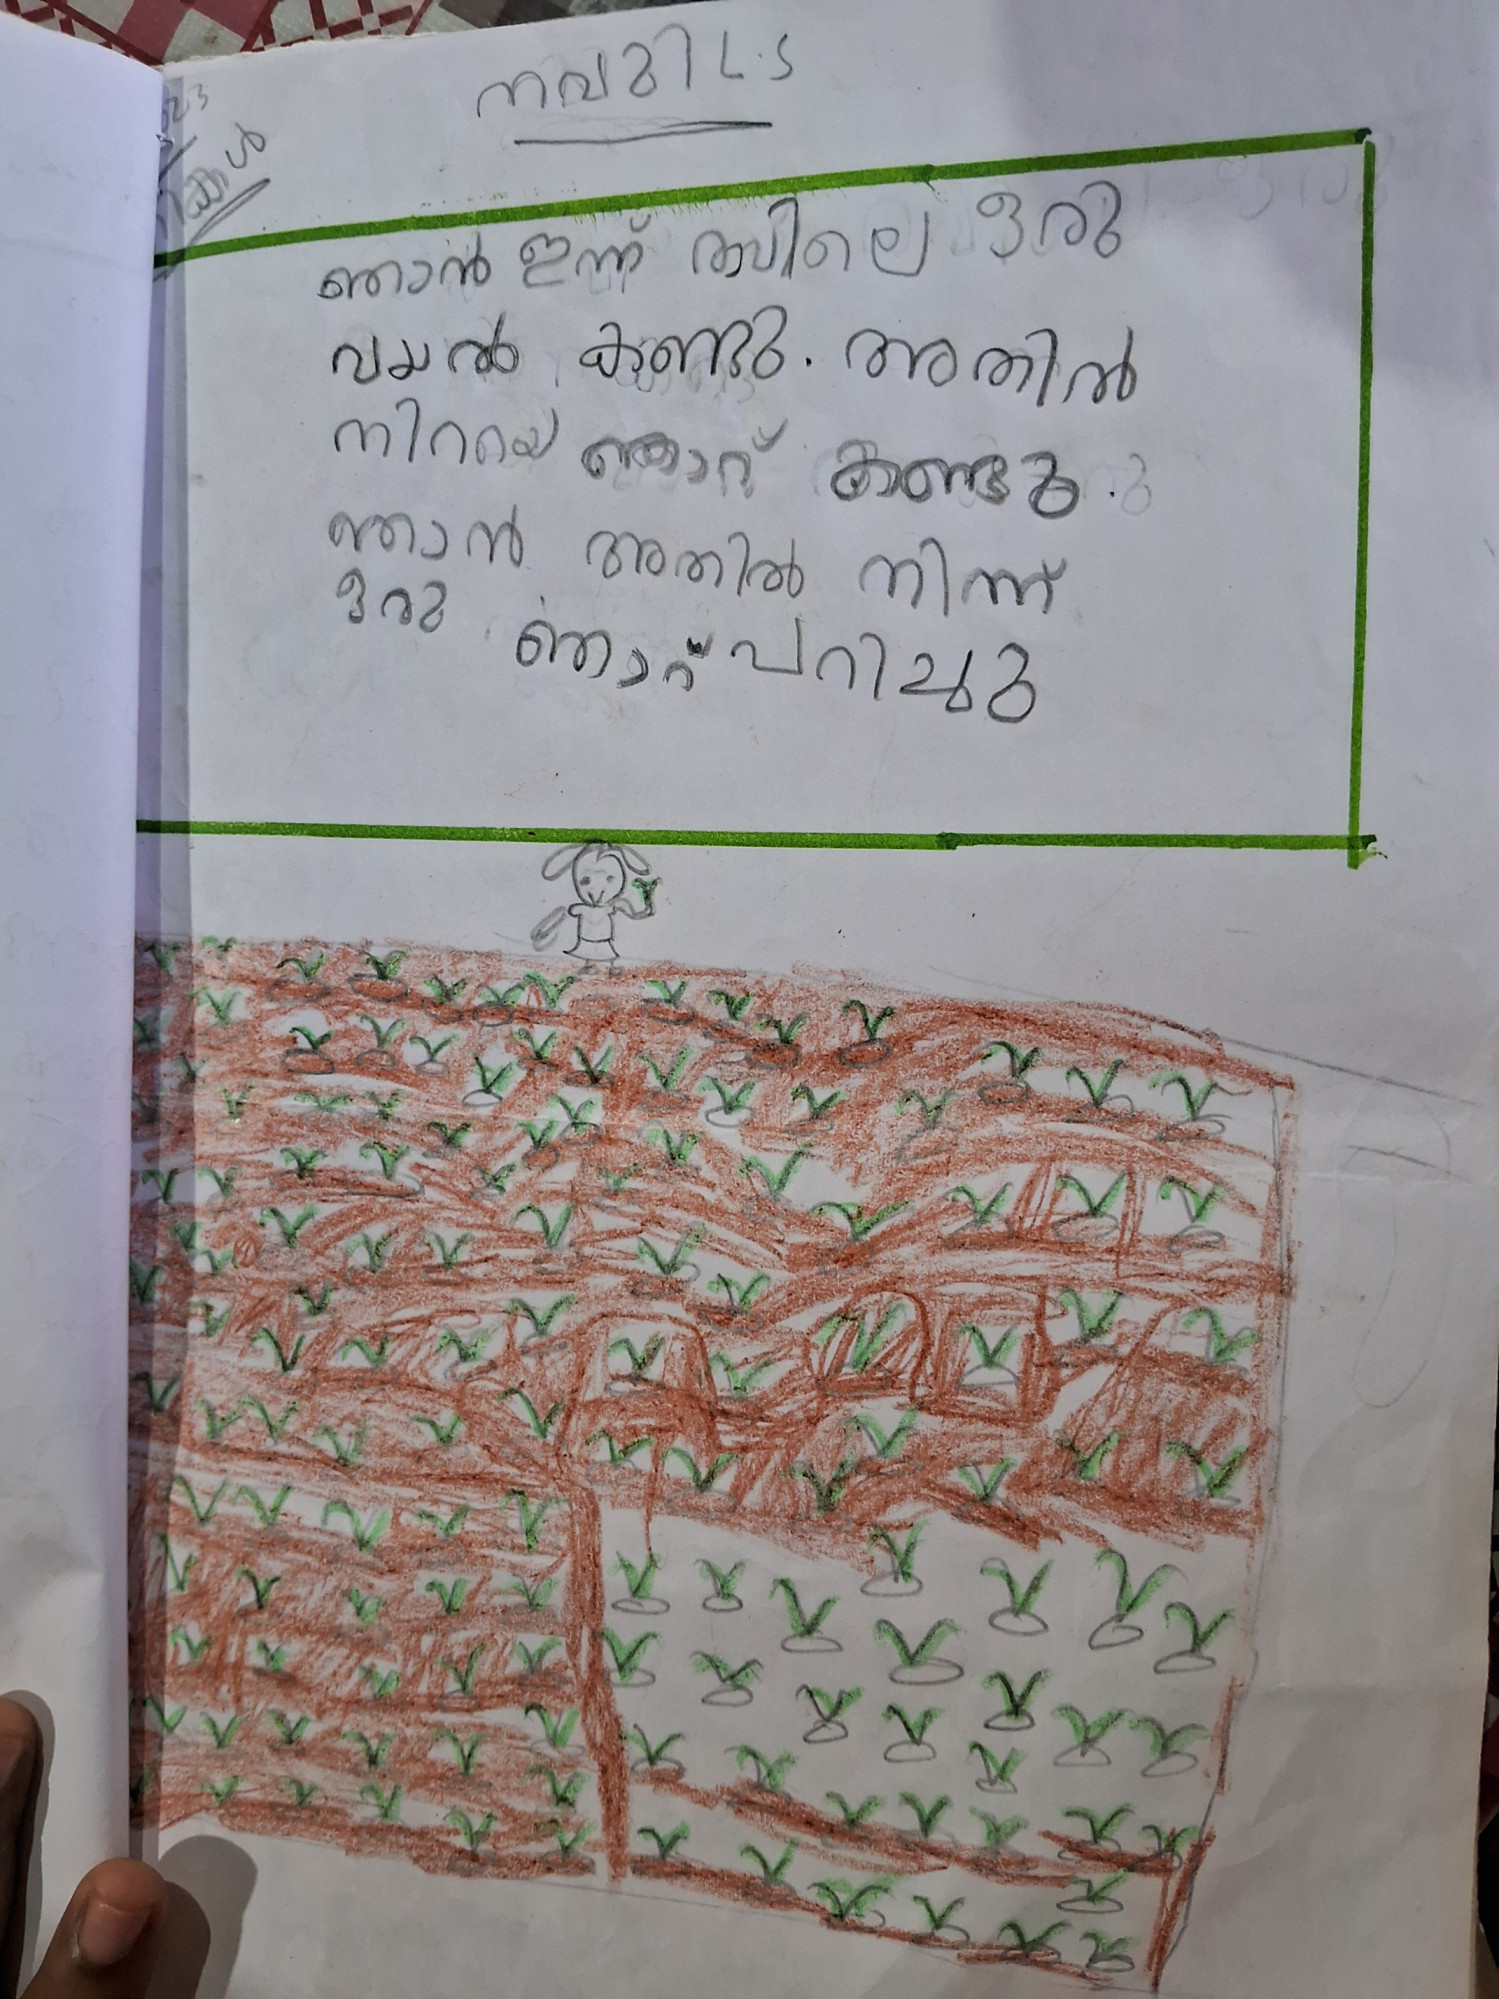 നവമി L.S
ഞാൻ ഇന്ന് രാവിലെ ഒരു
വയൽ കണ്ടു. അതിൽ
നിറയെ ഞാറ് കണ്ടു.
ഞാൻ അതിൽ നിന്ന്
ഒരു ഞാറ് പറിച്ചു